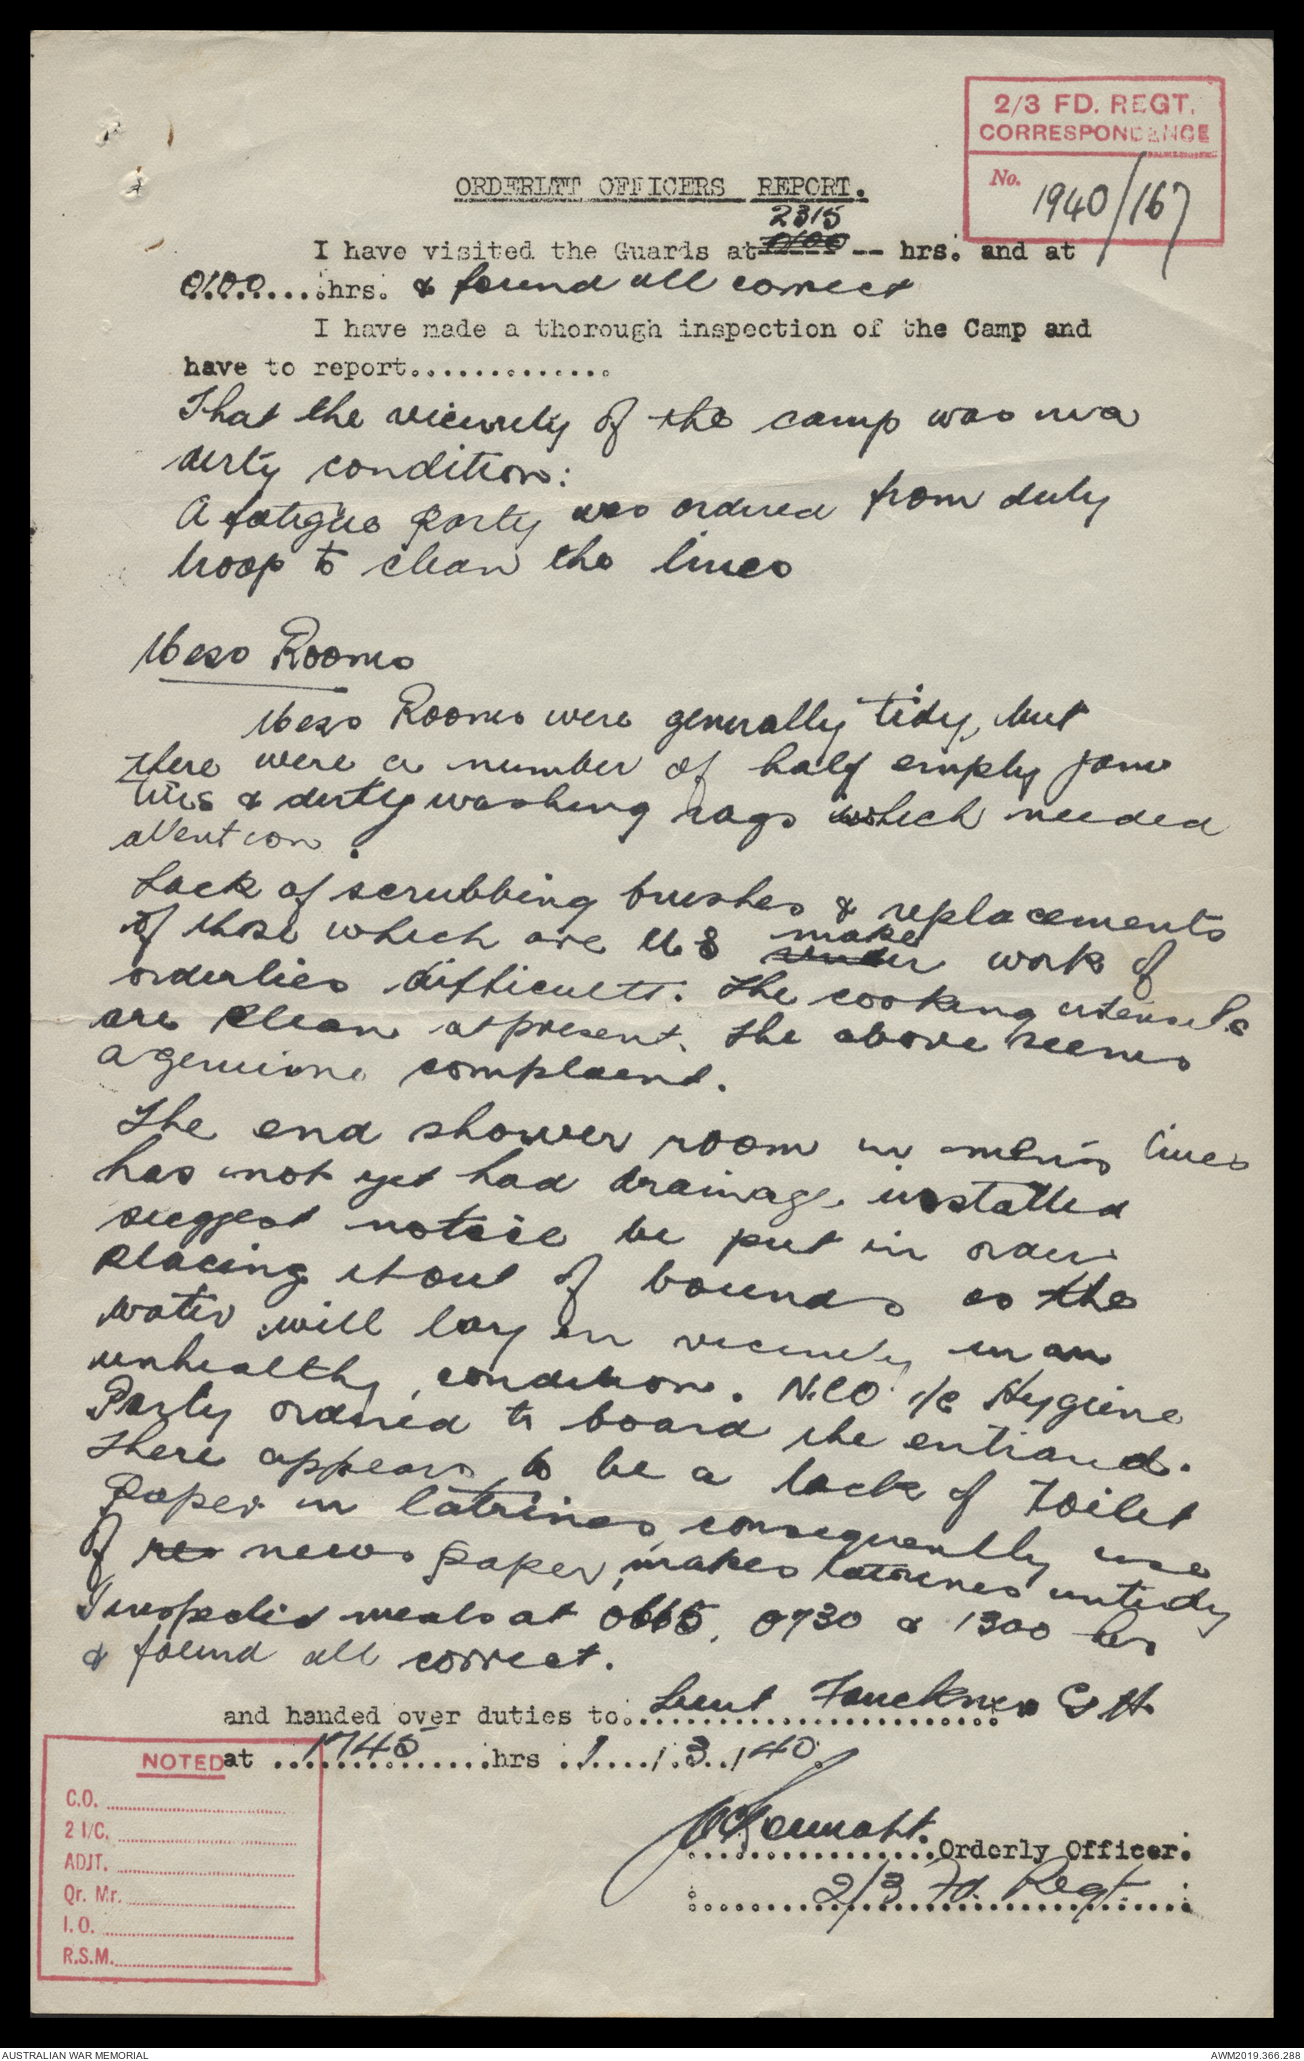 2/3 FD. REGT.
CORRESPONDENCE
No. 1940/167
ORDERLTT OFFICERS REPORT.
2315
I have visited the Guards at 0100 -- hrs. and at
0100 hrs. & found all correct
I have made a thorough inspection of the Camp and
have to report..............
That the vicinity of the camp was in a
dirty condition:
A fatigue party was ordered from duty
troop to clean the lines
Mess Rooms
Mess Rooms were generally tidy, but
there were a number of half empty jam
tins & dirty washing rags which needed
attention.
Lack of scrubbing brushes & replacements
of those which are U S make work of
orderlies difficult. The cooking utensils
are clean at present. The above seems
a genuine complaint.
The end shower room in men's lines
has not yet had drainage installed
suggest notice be put in order
placing it out of bounds as the
water will lay in vicinity in an
unhealthy condition. N.C.O. i/c Hygiene
Party ordered to board the entrance.
There appears to be a lack of Toilet
paper in latrines, consequently use
of news paper, makes latrines untidy
Inspected meals at 0665, 0730 & 1300 hrs
& found all correct.
and handed over duties to Lieut Faulkner G H
at 1745 hrs 1/3/40.
NOTED
C.O.
2 I/C.
ADJT.
Qr. Mr.
I. O.
R.S.M.
Orderly Officer.
2/3 Fd. Regt.
AUSTRALIAN WAR MEMORIAL
AWM2019.366.288